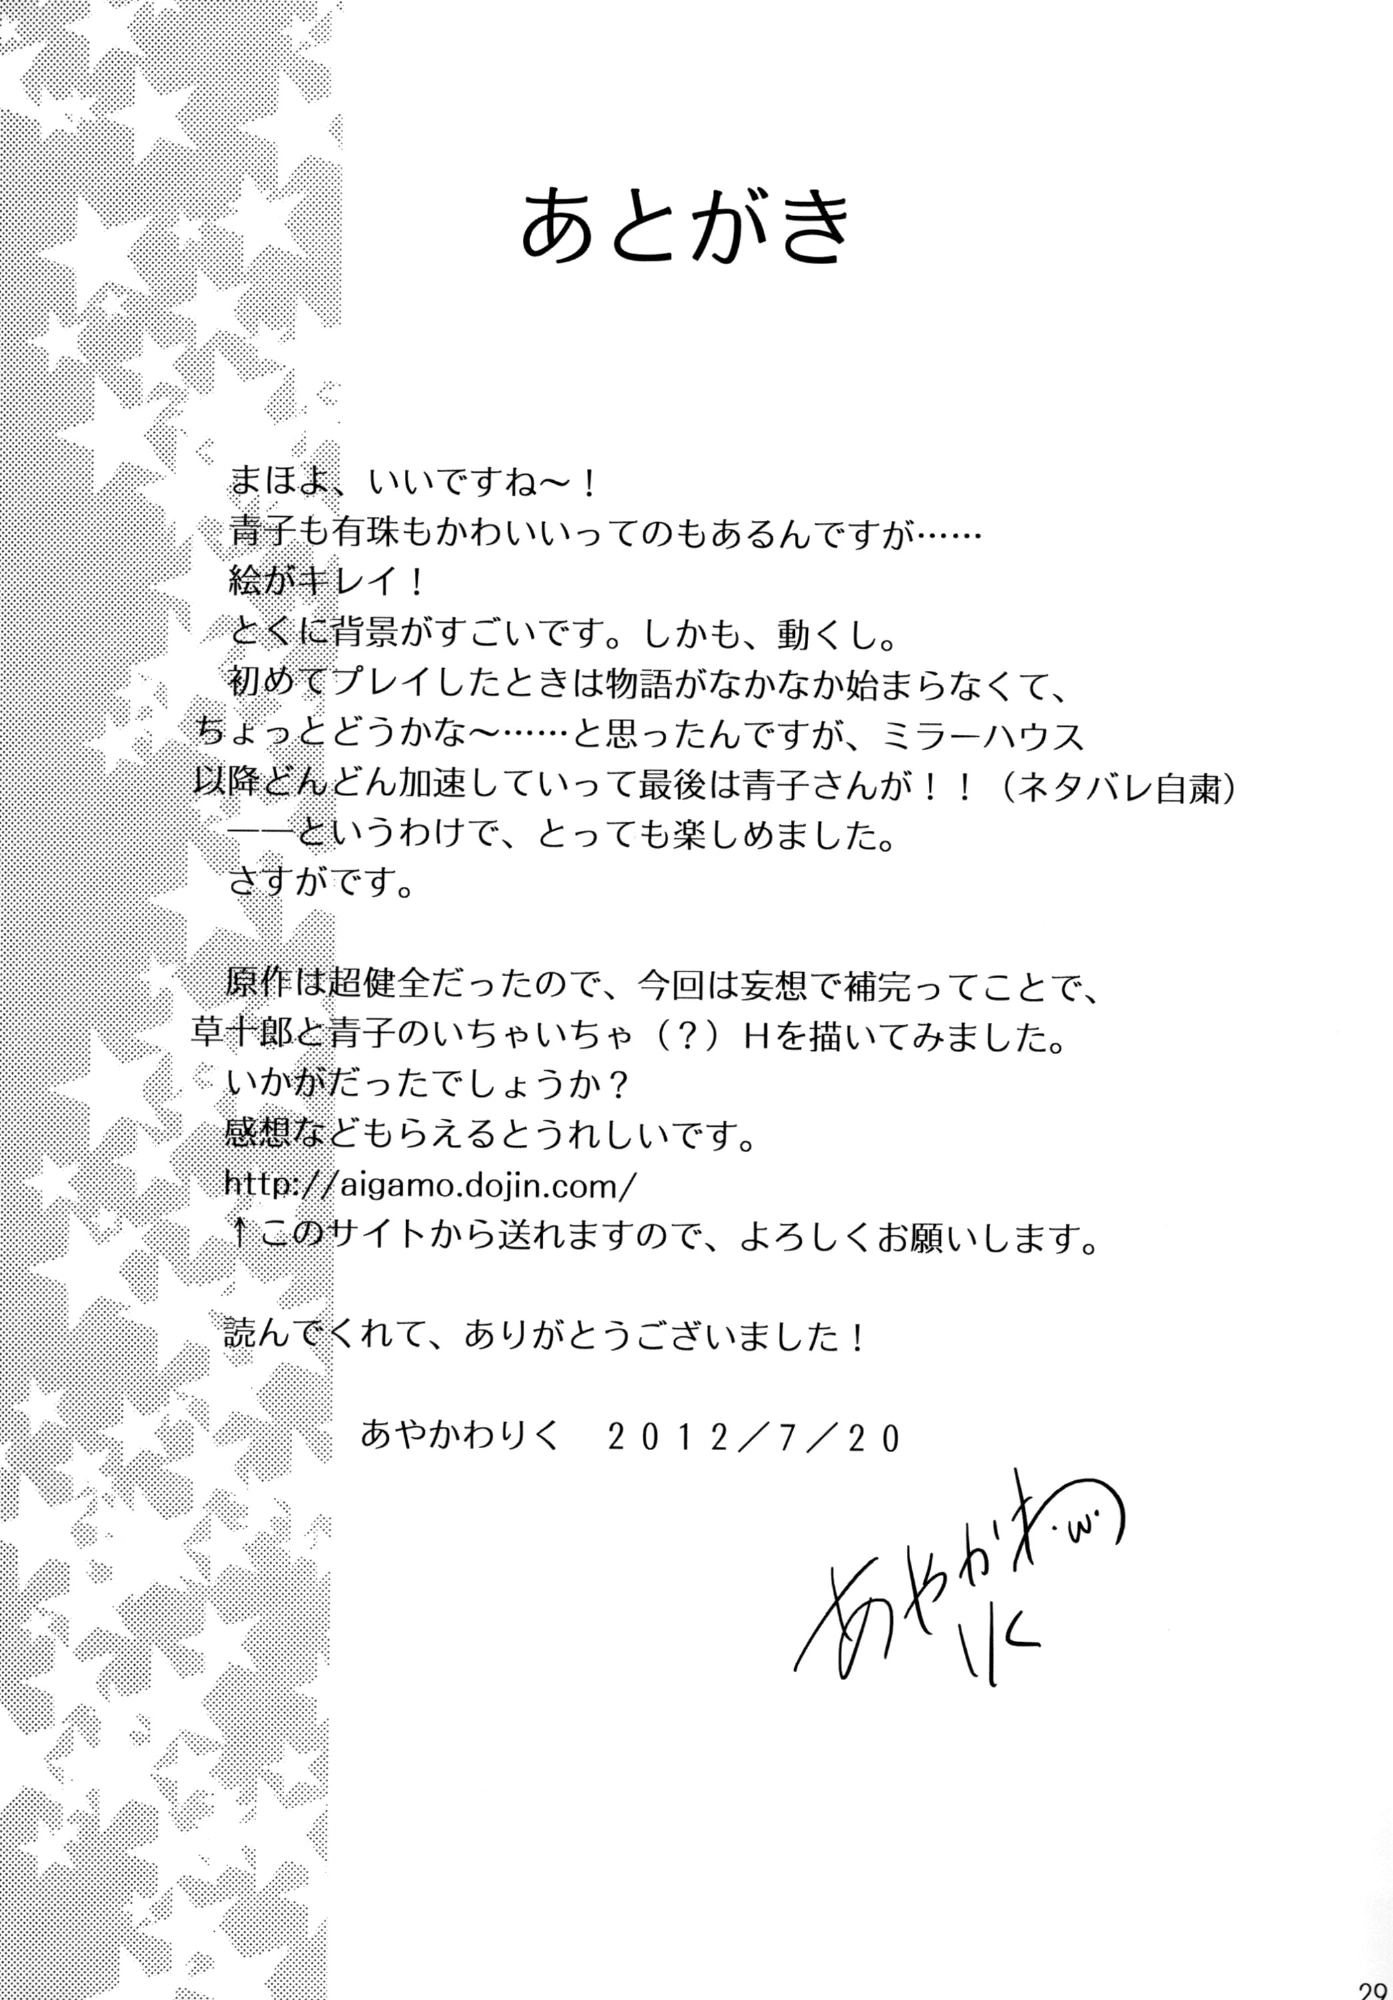 あとがき
まほよ、いいですね～！
青子も有珠もかわいいってのもあるんですが……
絵がキレイ！
とくに背景がすごいです。しかも、動くし。
初めてプレイしたときは物語がなかなか始まらなくて、
ちょっとどうかな～……と思ったんですが、ミラーハウス
以降どんどん加速していって最後は青子さんが！！（ネタバレ自粛）
――というわけで、とっても楽しめました。
さすがです。
原作は超健全だったので、今回は妄想で補完ってことで、
草十郎と青子のいちゃいちゃ（？）Ｈを描いてみました。
いかがだったでしょうか？
感想などもらえるとうれしいです。
http://aigamo.dojin.com/
↑このサイトから送れますので、よろしくお願いします。
読んでくれて、ありがとうございました！
あやかわりく　２０１２／７／２０
あやかわ・ω・
りく
29